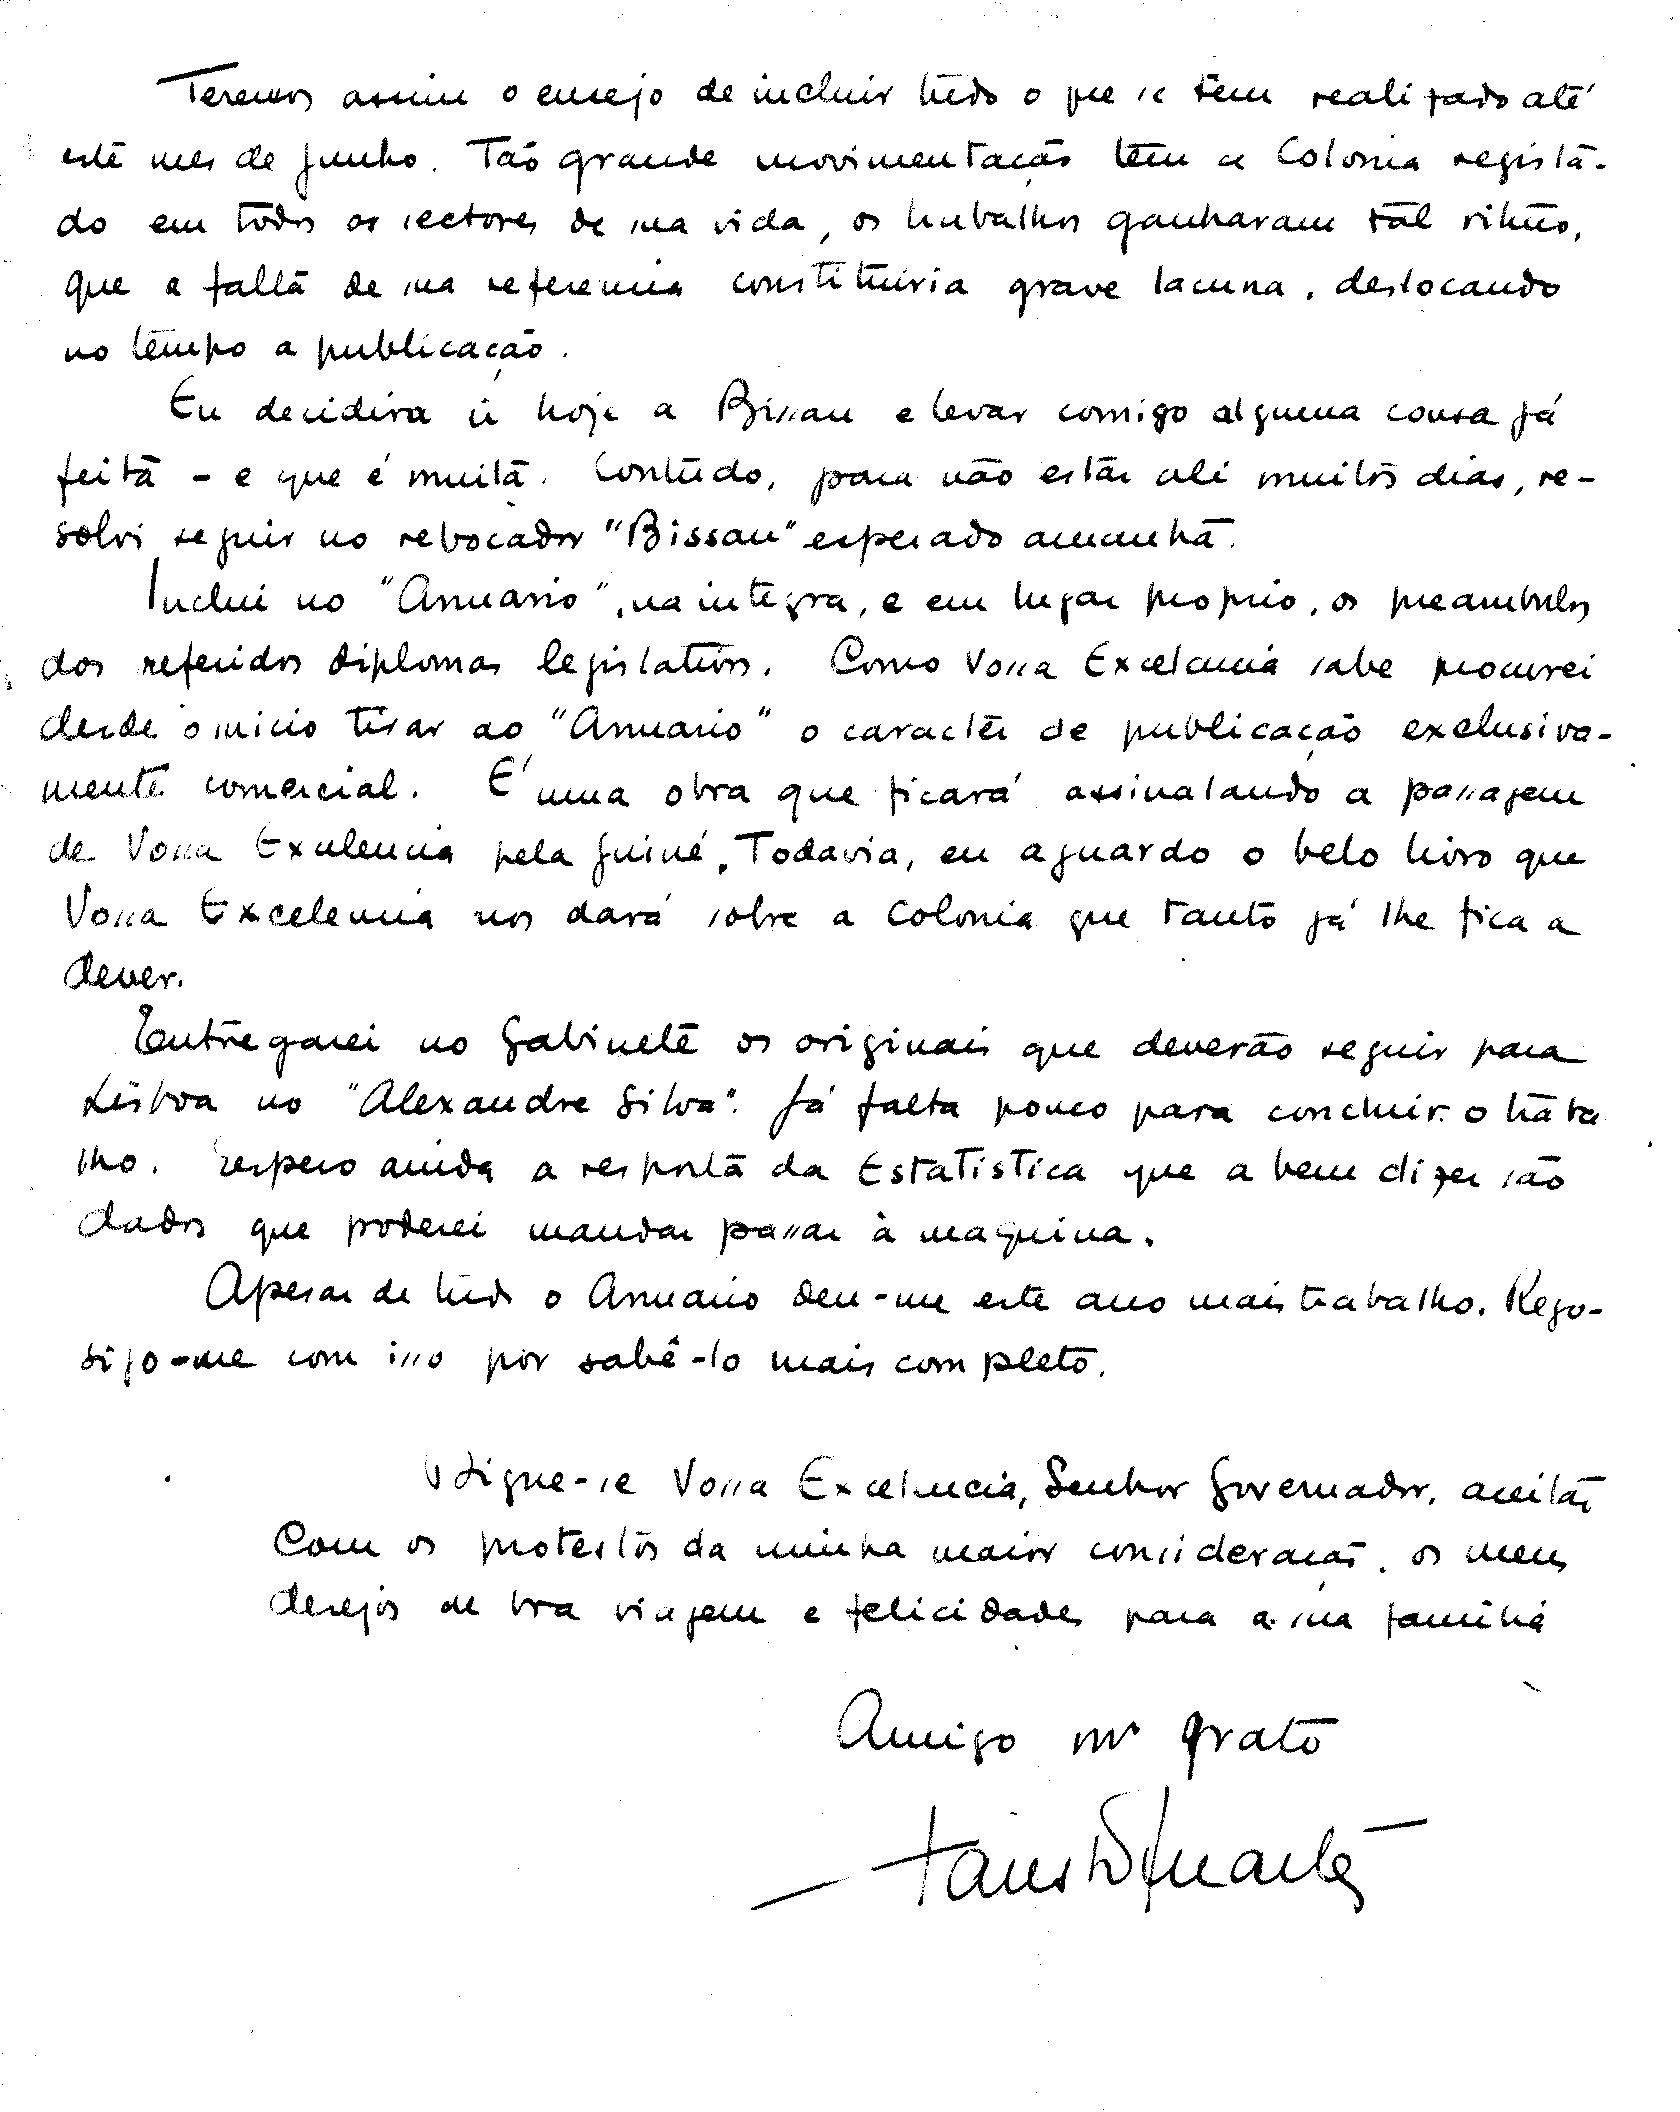 Teremos assim o ensejo de incluir tudo o que se tem realizado até
este mes de Junho. Tão grande movimentação tem a Colonia regista-
do em todos os sectores de sua vida, os trabalhos ganharam tal ritmo,
que a falta de sua referencia constituiria grave lacuna, deslocando
no tempo a publicação.
Eu decidira ir hoje a Bissau e levar comigo alguma cousa já
feita - e que é muita. Contudo, para não estar ali muitos dias, re-
solvi seguir no rebocador "Bissau" esperado amanhã.
Inclui no "Anuario", na integra, e em lugar proprio, os preambulos
dos referidos diplomas legislativos. Como Vossa Excelencia sabe procurei
desde o inicio tirar ao "Anuario" o caracter de publicação exclusiva-
mente comercial. É uma obra que ficará assinalando a passagem
de Vossa Excelencia pela Guiné. Todavia, eu aguardo o belo livro que
Vossa Excelencia nos dará sobre a Colonia que tanto já lhe fica a
dever.
Entregarei no Gabinete os originais que deverão seguir para
Lisboa no "Alexandre Silva". Já falta pouco para concluir o traba
lho. Espero ainda a resposta da Estatistica que a bem dizer são
dados que poderei mandar passar à maquina.
Apesar de tudo o Anuario deu-me este ano mais trabalho. Rego-
sijo-me com isso por sabê-lo mais completo.
Digne-se Vossa Excelencia, Senhor Governador, aceitar
com os protestos da minha maior consideração, os meus
desejos de boa viagem e felicidades para a sua familia
Amigo mto grato
Fausto Duarte